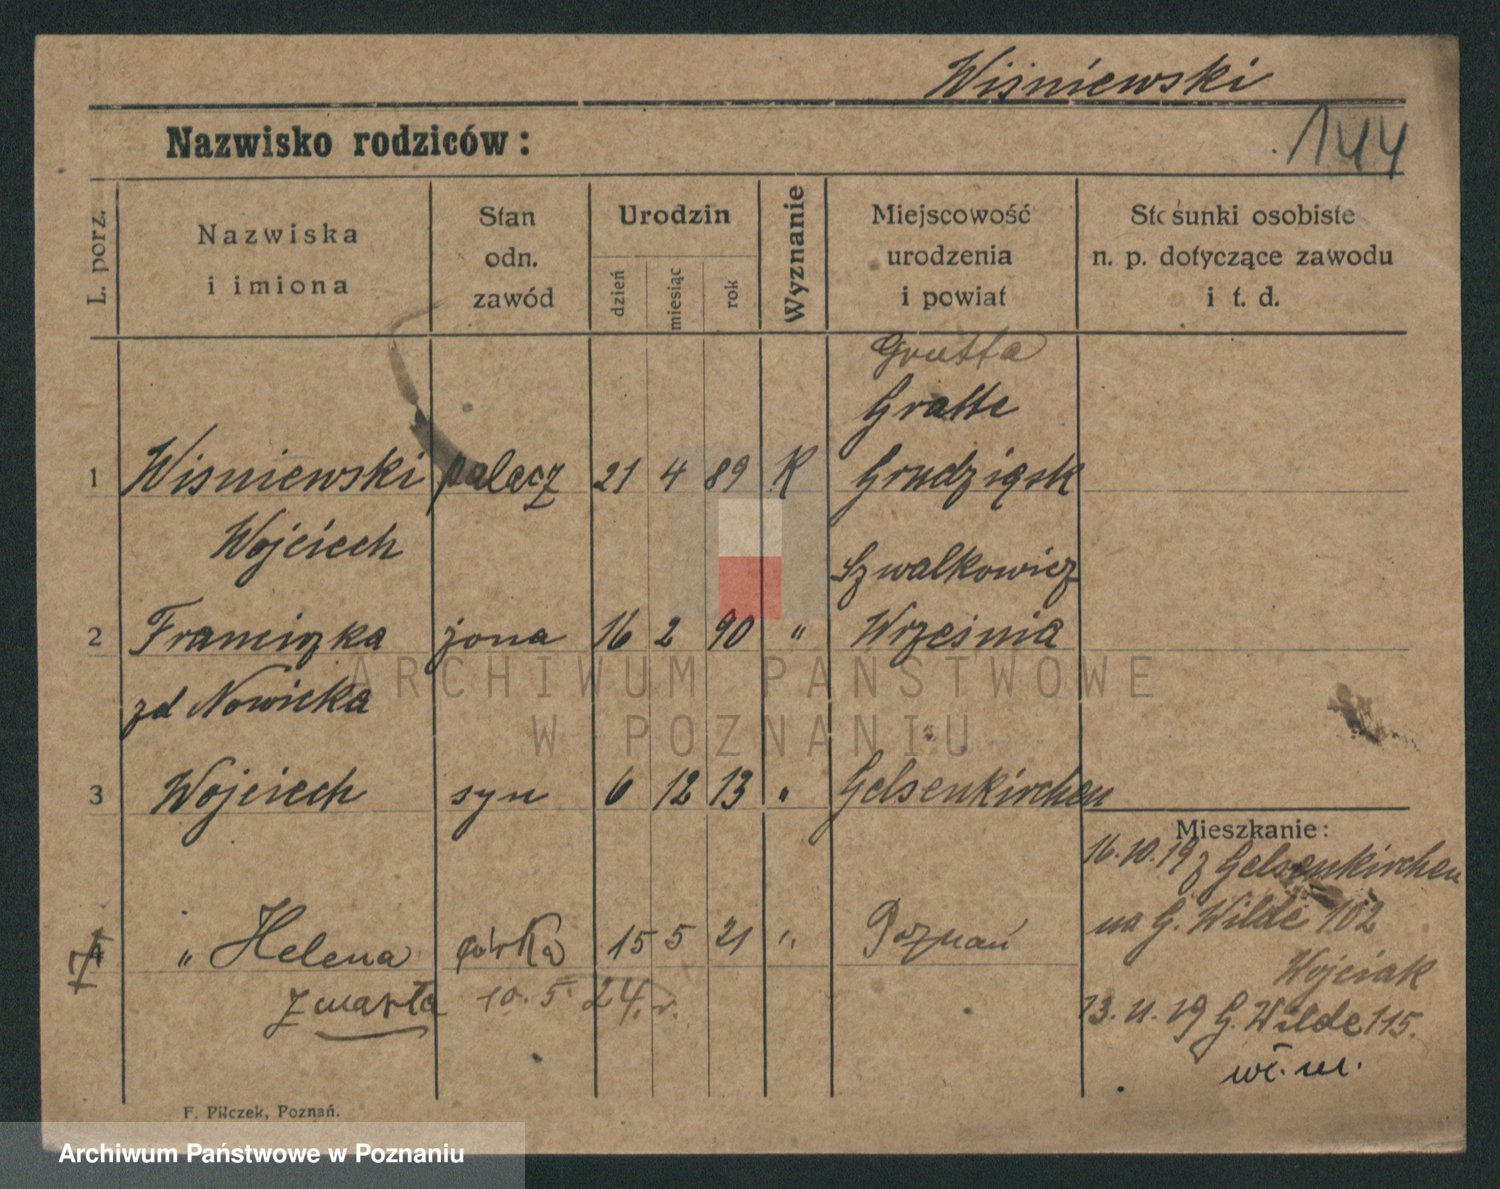 Wiśniewski
Nazwisko rodziców:
144
L. porz.
Nazwiska i imiona
Stan odn. zawód
Urodzin
dzień
miesiąc
rok
Wyznanie
Miejscowość urodzenia i powiat
Stosunki osobiste n. p. dotyczące zawodu i t. d.
Grutta
Gratte
1 Wisniewski palacz 21 4 89 K Grudziąsk
Wojciech
Szwalkowicz
2 Franciszka żona 16 2 90 " Września
zd Nowicka
3 Wojciech syn 6 12 13 " Gelsenkirchen
Mieszkanie:
16.10.19 z Gelsenkirchen
na G. Wilde 102
Wojciak
13.11.19 G. Wilde 115.
wł. m.
4 " Helena córka 15 5 21 " Poznań
zmarła 10.5 24.r.
F. Pilczek, Poznań.
ARCHIWUM PAŃSTWOWE
W POZNANIU
Archiwum Państwowe w Poznaniu